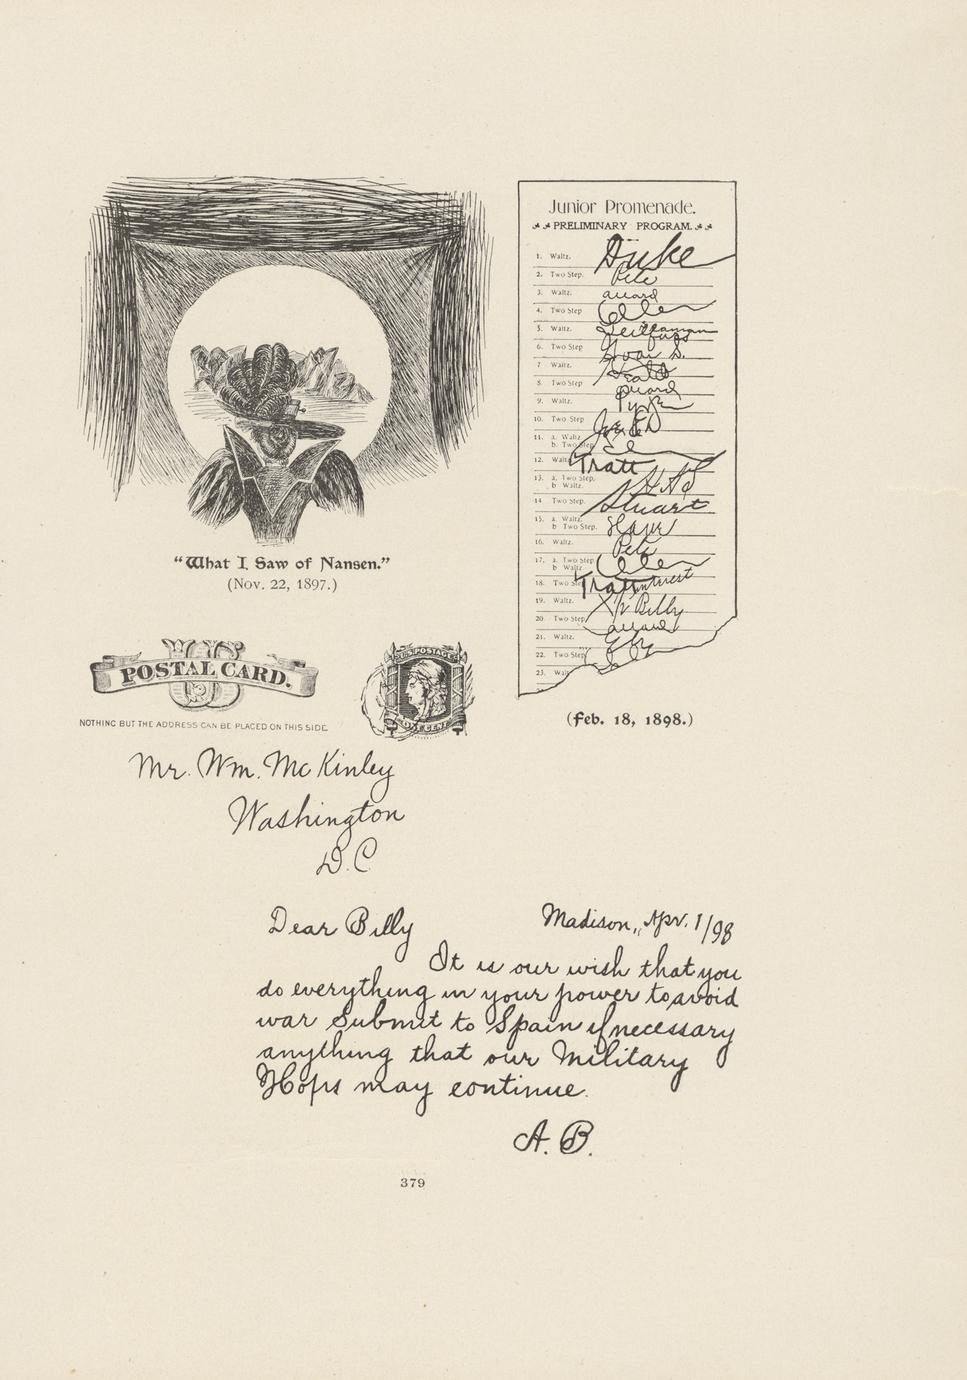 Junior Promenade.
PRELIMINARY PROGRAM.
1. Waltz. Duke
2. Two Step. Pete
3. Waltz.
4. Two Step
5. Waltz.
6. Two Step
7 Waltz.
8. Two Step
9. Waltz.
10. Two Step
11. a. Waltz
b. Two Step.
12. Waltz Tratt
13. a. Two Step.
b Waltz.
14 Two Step. Stuart
15. a. Waltz.
b Two Step.
16. Waltz. Pete
17. a. Two Step
b Waltz
18. Two Step Tratt
19. Waltz. Billy
20. Two Step
21. Waltz.
22. Two Step
23. Walt
(Feb. 18, 1898.)
"What I Saw of Nansen."
(Nov. 22, 1897.)
POSTAL CARD.
U.S. POSTAGE
ONE CENT
NOTHING BUT THE ADDRESS CAN BE PLACED ON THIS SIDE.
Mr. Wm. McKinley
Washington
D.C.
Dear Billy Madison, Apr. 1/98
It is our wish that you
do everything in your power to avoid
war Submit to Spain if necessary
anything that our Military
Hops may continue.
A. B.
379